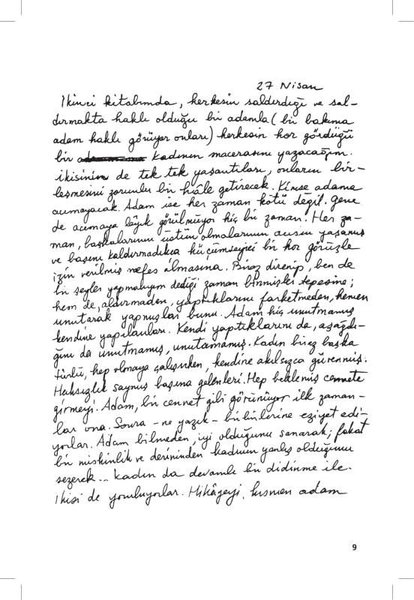 27 Nisan
İkinci kitabımda, herkesin saldırdığı ve sal-
dırmakta haklı olduğu bir adamla (bir bakıma
adam haklı görüyor onları) herkesin hor gördüğü
bir kadının macerasını yazacağım.
ikisinin de tek tek yaşantıları, onların bir-
leşmesini zorunlu bir hâle getirecek. Kimse adama
acımayacak. Adam ise her zaman kötü değil. gene
de acımaya lâyık görülmüyor hiç bir zaman! Her za-
man, başkalarının üstün olmalarının acısını yaşamış
ve başını kaldırmadıkça küçümseyici bir hor görüşle
izin verilmiş nefes almasına. Biraz direnip, ben de
bir şeyler yapmalıyım dediği zaman binmişler tepesine;
hem de, aldırmadan, yaptıklarını farketmeden, hemen
unutarak yapmışlar bunu. Adam hiç unutmamış
kendine yapılanları. Kendi yaptıklarını da, aşağılı-
ğını da unutmamış, unutamamış. Kadın biraz başka
türlü, hep olmaya çalışırken, kendine akılsızca güvenmiş.
Haksızlık saymış başına gelenleri. Hep beklemiş cennete
girmeyi. Adam, bir cennet gibi görünüyor ilk zaman-
lar ona. Sonra - ne yazık - birbirlerine eziyet edi-
yorlar. Adam bilmeden, iyi olduğunu sanarak; fakat
bir miskinlik ve derininden kadının yanlış olduğunu
sezerek... kadın da devamlı bir didinme ile.
İkisi de yoruluyorlar. Hikâyeyi, kısmen adam
9